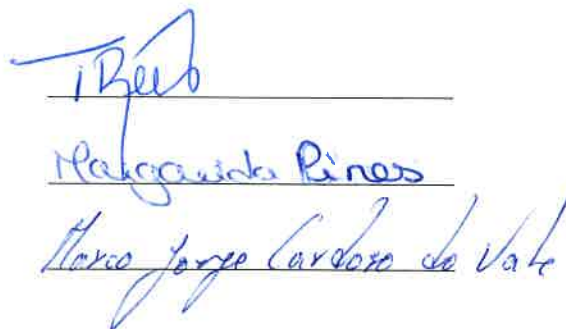 Margarida Pires
Marco Jorge Cardoso do Vale